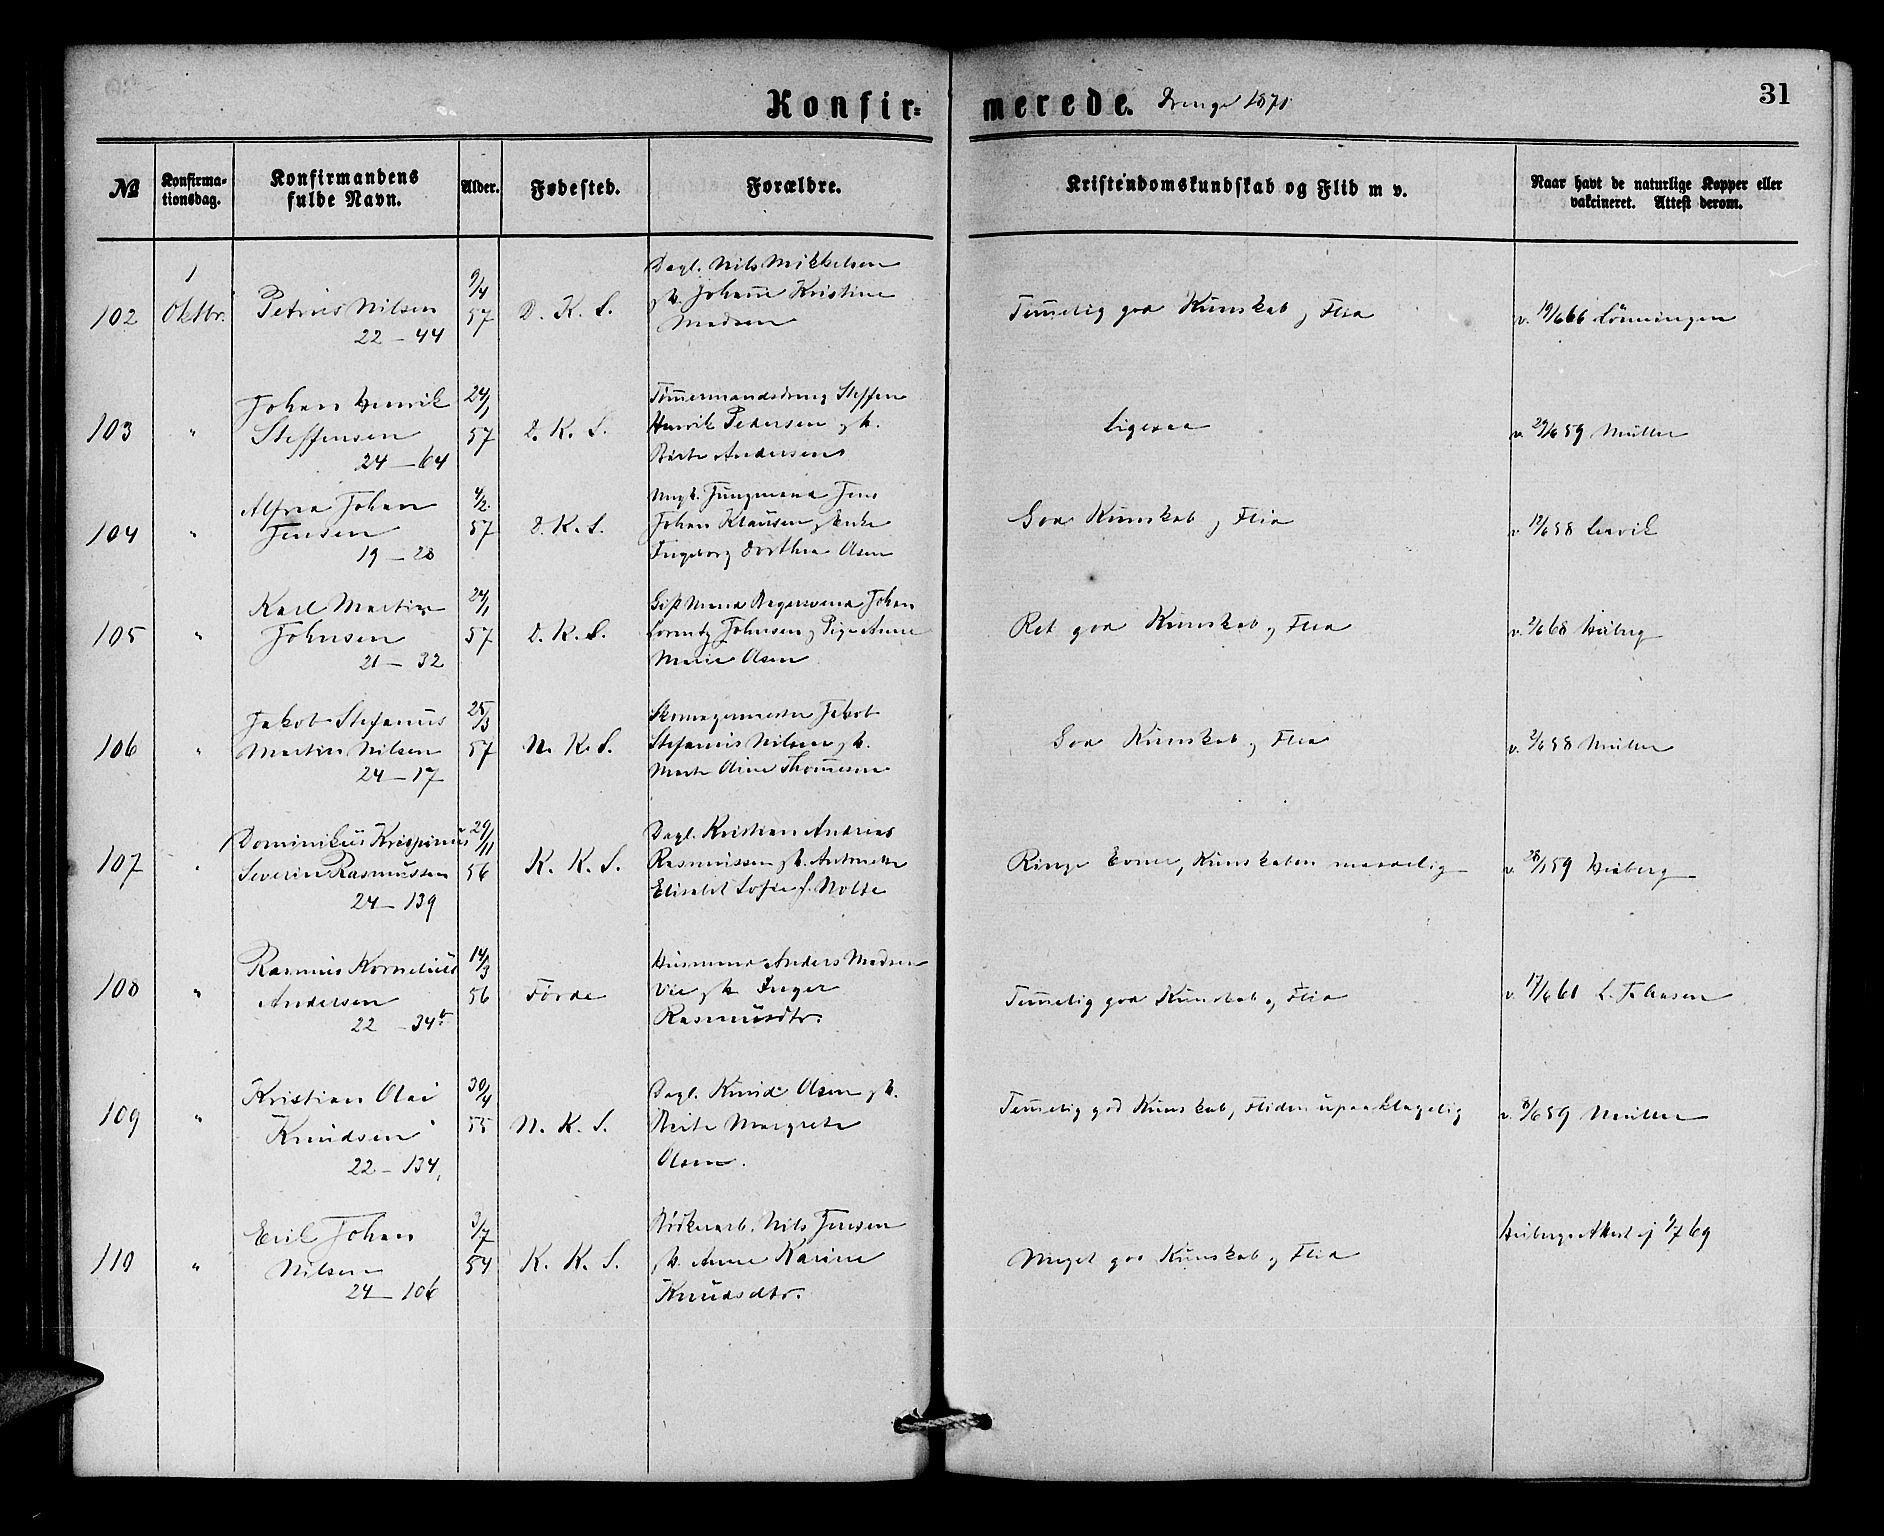 Konfirmerede. Drenge 1871
31
№
Konfirmationsdag.
Konfirmandens fulde Navn.
Alder.
Fødested.
Forældre.
Kristendomskundskab og Flid m v.
Naar havt de naturlige Kopper eller vakcineret. Attest derom.
102 1 Oktbr.
Petrus Nilsen
22 – 44
9/4 57
D. K. S.
Dagl. Nils Mikkelsen
og h. Johanne Kristine
Madsen
Temmelig god Kunskab og Flid
v. 19/6 66 Lönningen
103 "
Johan Henrik
Steffensen
24 – 64
24/1 57
D. K. S.
Tömmermandsdreng Steffen
Henrik Pedersen og h.
Birte Andersen
Ligesaa
v. 29/6 59 Müller
104 "
Alfred Johan
Jensen
19 – 28
4/2 57
D. K. S.
Ungk. Jungmand Jens
Johan Klausen og Enke
Ingeborg Dorthea Olsen
God Kunskab og Flid
v 12/6 58 Lervik
105 "
Karl Martin
Johnsen
21 – 32
24/1 57
D. K. S.
Gift Mand Bagersvend Johan
Lorentz Johnsen og Pige Anne
Marie Olsen
Ret god Kunskab og Flid
v. 2/6 68 Heiberg
106 "
Jakob Stefanus
Martin Nilsen
24 – 17
25/3 57
N. K. S.
Skomagermester Jakob
Stefanus Nilsen og h.
Marte Oline Thomesen
God Kunskab og Flid
v. 2/6 58 Müller
107 "
Dominikus Krispinus
Severin Rasmussen
24 – 139
29/11 56
K. K. S.
Dagl. Kristian Andreas
Rasmussen og h. Antonette
Elisabet Sofie f. Nolte
Ringe Evner, Kunskaben maadelig
v. 28/1 59 Heiberg
108 "
Rasmus Kornelius
Andersen
22 – 34b.
14/3 56
Förde
Husmand Anders Madsen
Vie og h Inger
Rasmusdtr.
Temmelig god Kunskab og Flid
v. 17/6 61 L. Johnsen
109 "
Kristian Olai
Knudsen
22 – 134,
30/4 55
N. K. S.
Dagl. Knud Olsen og h.
Berte Margrete
Olsen.
Temmelig god Kunskab, Fliden upaaklagelig
v. 8/6 59 Müller
110 "
Eril Johan
Nilsen
24 – 106
3/7 54
K. K. S.
Nils Jensen
og h. Anne Karine
Knudsdtr.
Meget god Kunskab og Flid
Heibergs Attest af 9/7 69